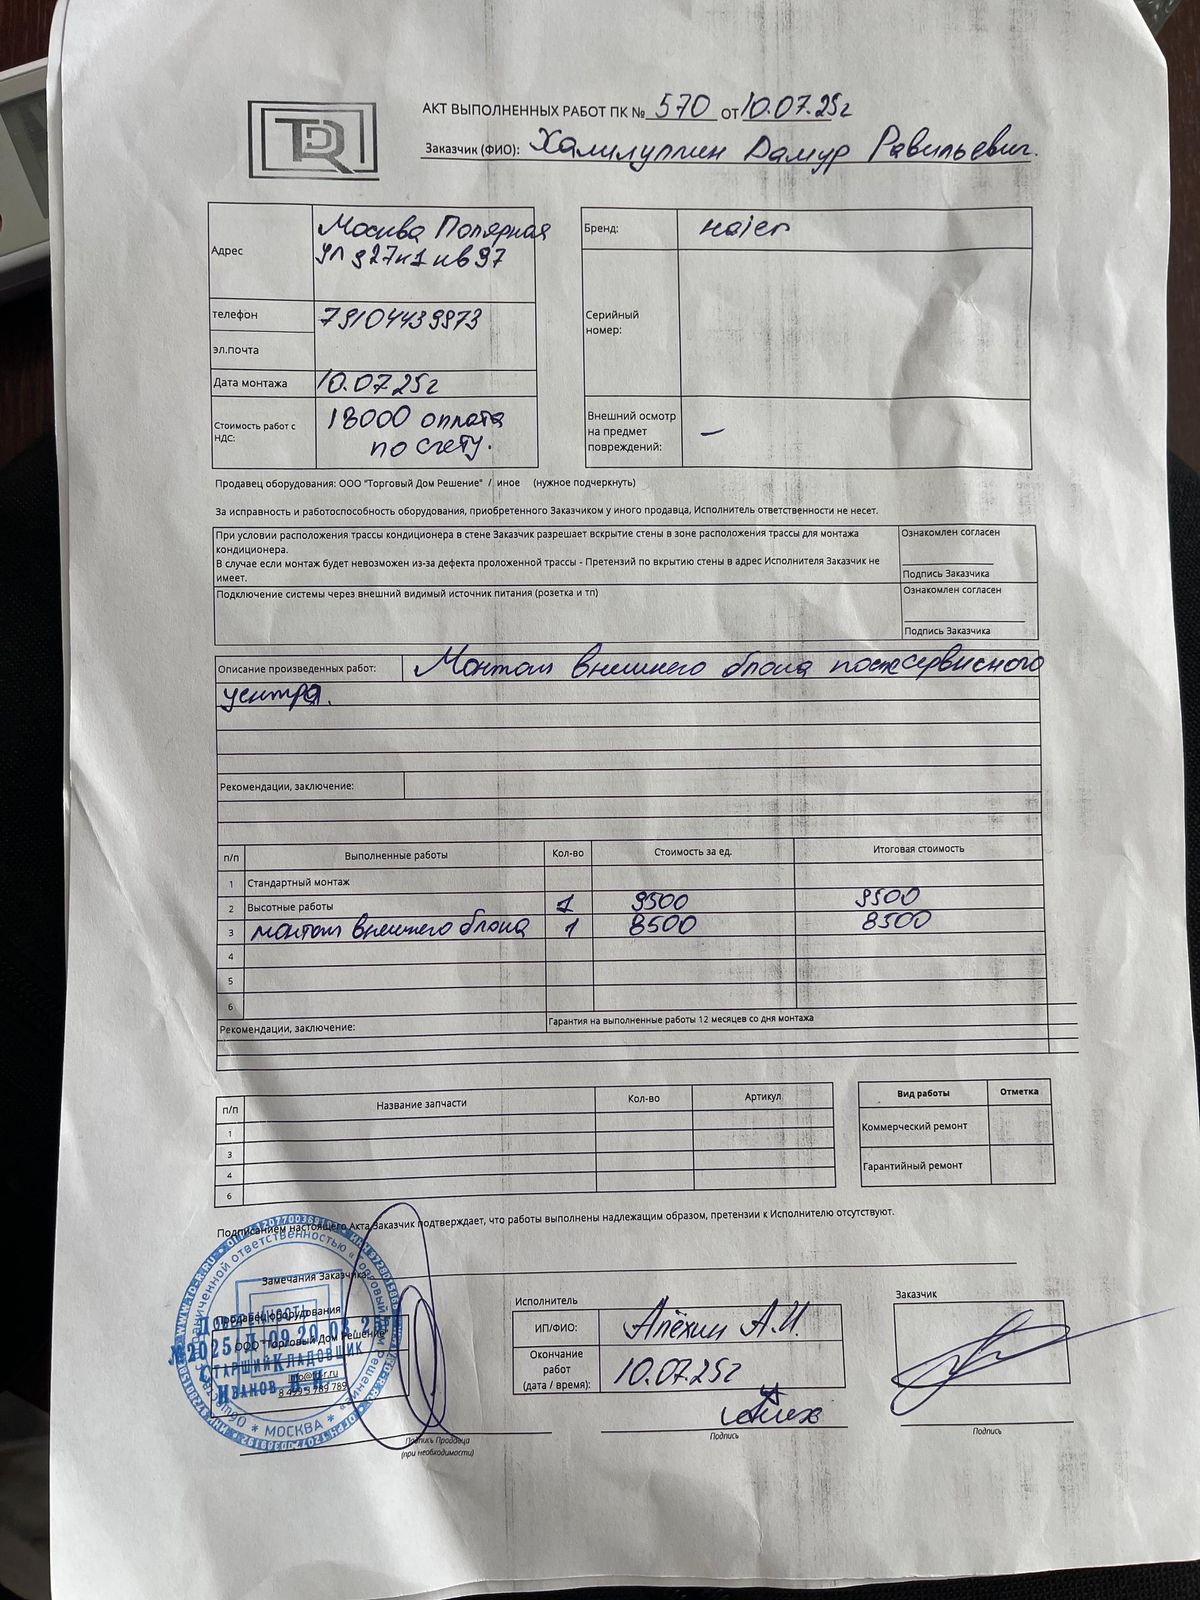 TDR
АКТ ВЫПОЛНЕННЫХ РАБОТ ПК № 570 от 10.07.25г
Заказчик (ФИО): Халилуллин Дамур Равильевич.
Адрес
Москва Полярная
ул д27к1 кв97
телефон
79104439973
эл.почта
Дата монтажа
10.07.25г
Стоимость работ с
НДС:
18000 оплата
по счету.
Бренд:
Haier
Серийный
номер:
Внешний осмотр
на предмет
повреждений:
—
Продавец оборудования: ООО "Торговый Дом Решение" / иное (нужное подчеркнуть)
За исправность и работоспособность оборудования, приобретенного Заказчиком у иного продавца, Исполнитель ответственности не несет.
При условии расположения трассы кондиционера в стене Заказчик разрешает вскрытие стены в зоне расположения трассы для монтажа
кондиционера.
В случае если монтаж будет невозможен из-за дефекта проложенной трассы - Претензий по вкрытию стены в адрес Исполнителя Заказчик не
имеет.
Ознакомлен согласен
Подпись Заказчика
Подключение системы через внешний видимый источник питания (розетка и тп)
Ознакомлен согласен
Подпись Заказчика
Описание произведенных работ: Монтаж внешнего блока послесервисного
центра.
Рекомендации, заключение:
п/п Выполненные работы Кол-во Стоимость за ед. Итоговая стоимость
1 Стандартный монтаж
2 Высотные работы 1 9500 9500
3 монтаж внешнего блока 1 8500 8500
4
5
6
Рекомендации, заключение: Гарантия на выполненные работы 12 месяцев со дня монтажа
п/п Название запчасти Кол-во Артикул
1
3
4
6
Вид работы Отметка
Коммерческий ремонт
Гарантийный ремонт
Подписанием настоящего Акта Заказчик подтверждает, что работы выполнены надлежащим образом, претензии к Исполнителю отсутствуют.
Замечания Заказчика:
Продавец оборудования
ООО "Торговый Дом Решение"
info@td-r.ru
8 499 3 789 789
Доверенность
Старший Кладовщик
Иванов В.И.
WWW.TD-R.RU
МОСКВА
Подпись Продавца
(при необходимости)
Исполнитель
ИП/ФИО: Алёхин А.И.
Окончание
работ
(дата / время):
10.07.25г
Подпись
Заказчик
Подпись